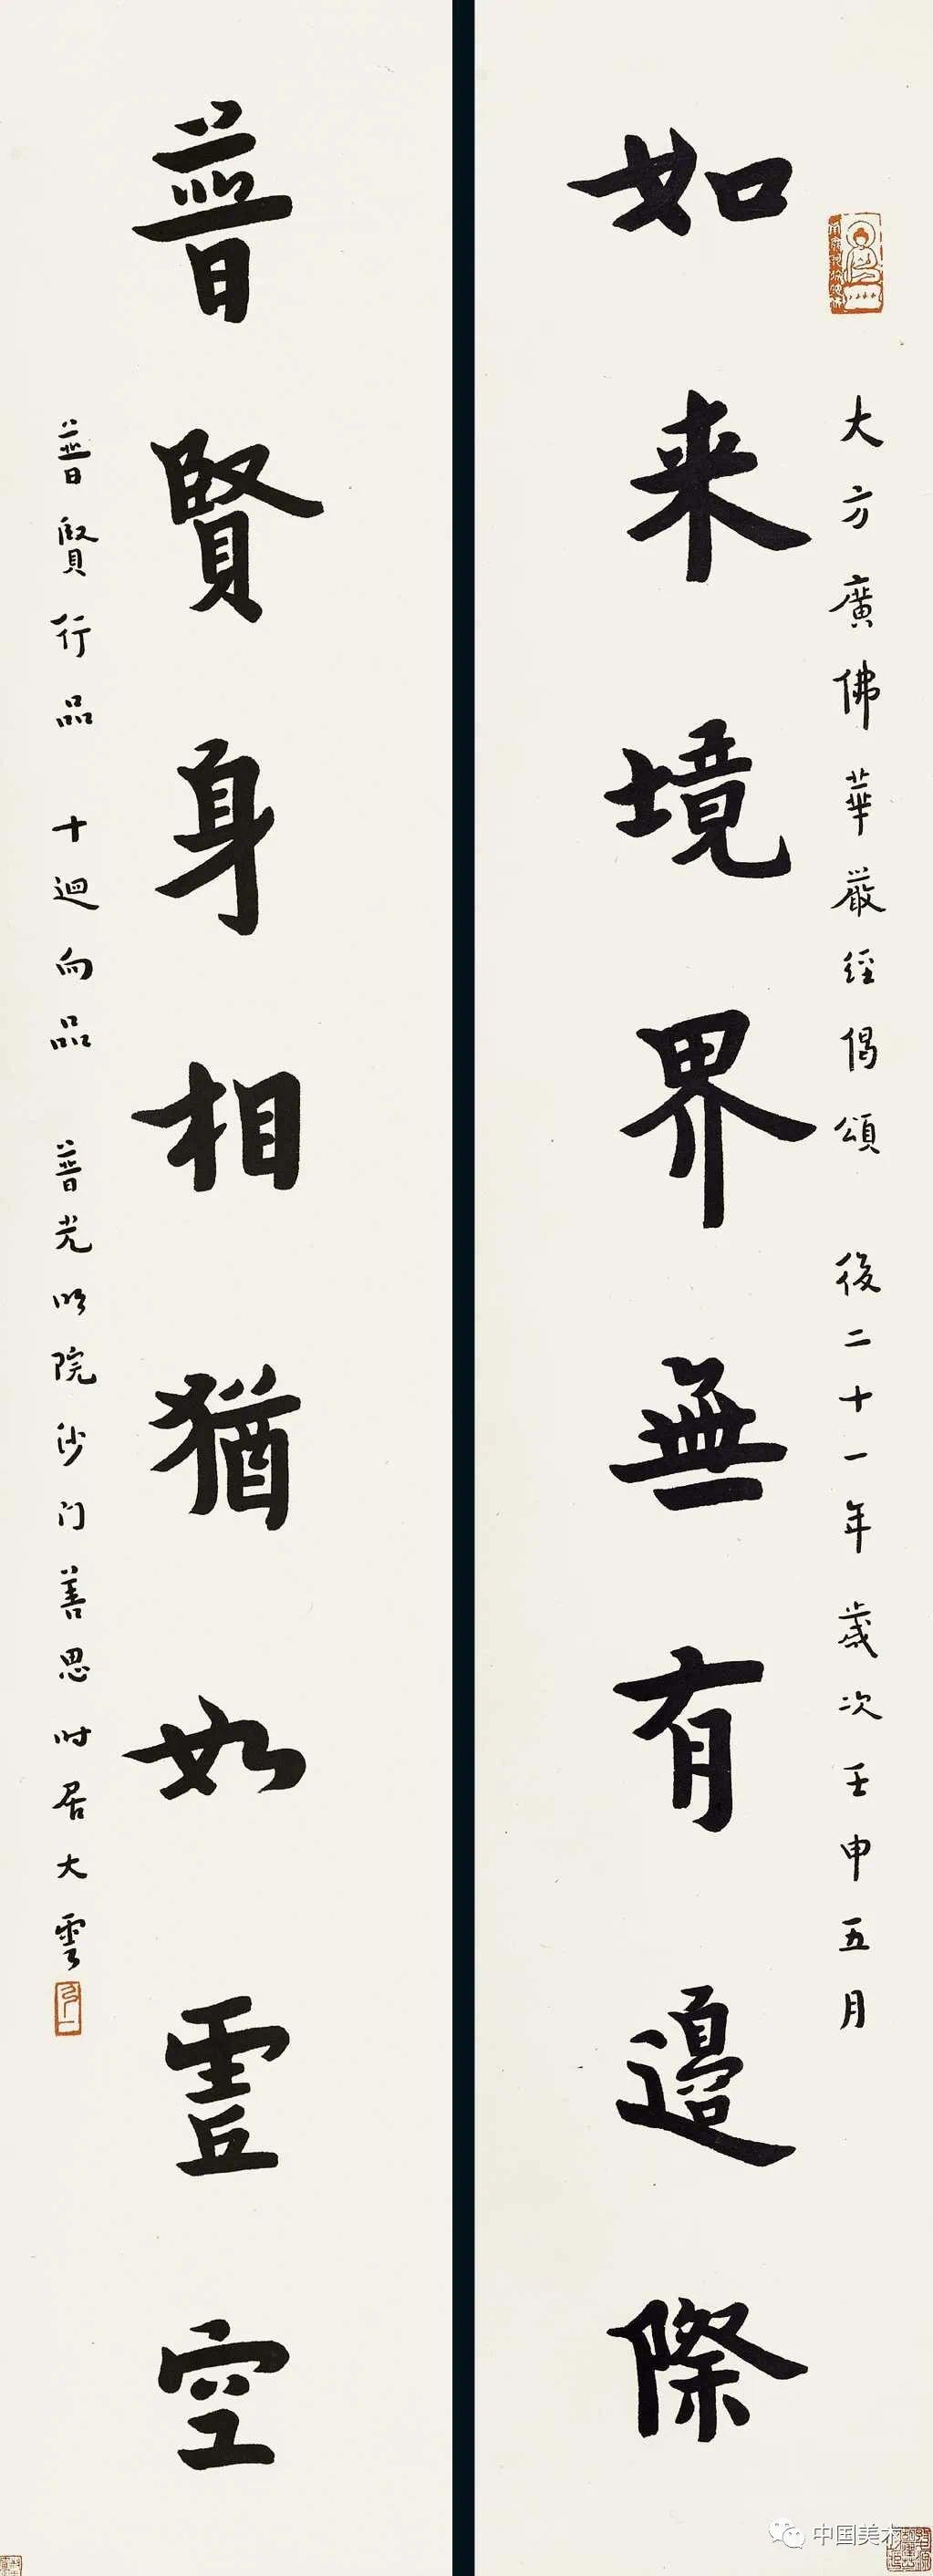 大方廣佛華嚴經偈頌 後二十一年歲次壬申五月
如来境界無有邊際
普賢身相猶如虛空
普賢行品 十迴向品 普光明院沙门善思时居大雲
中国美术